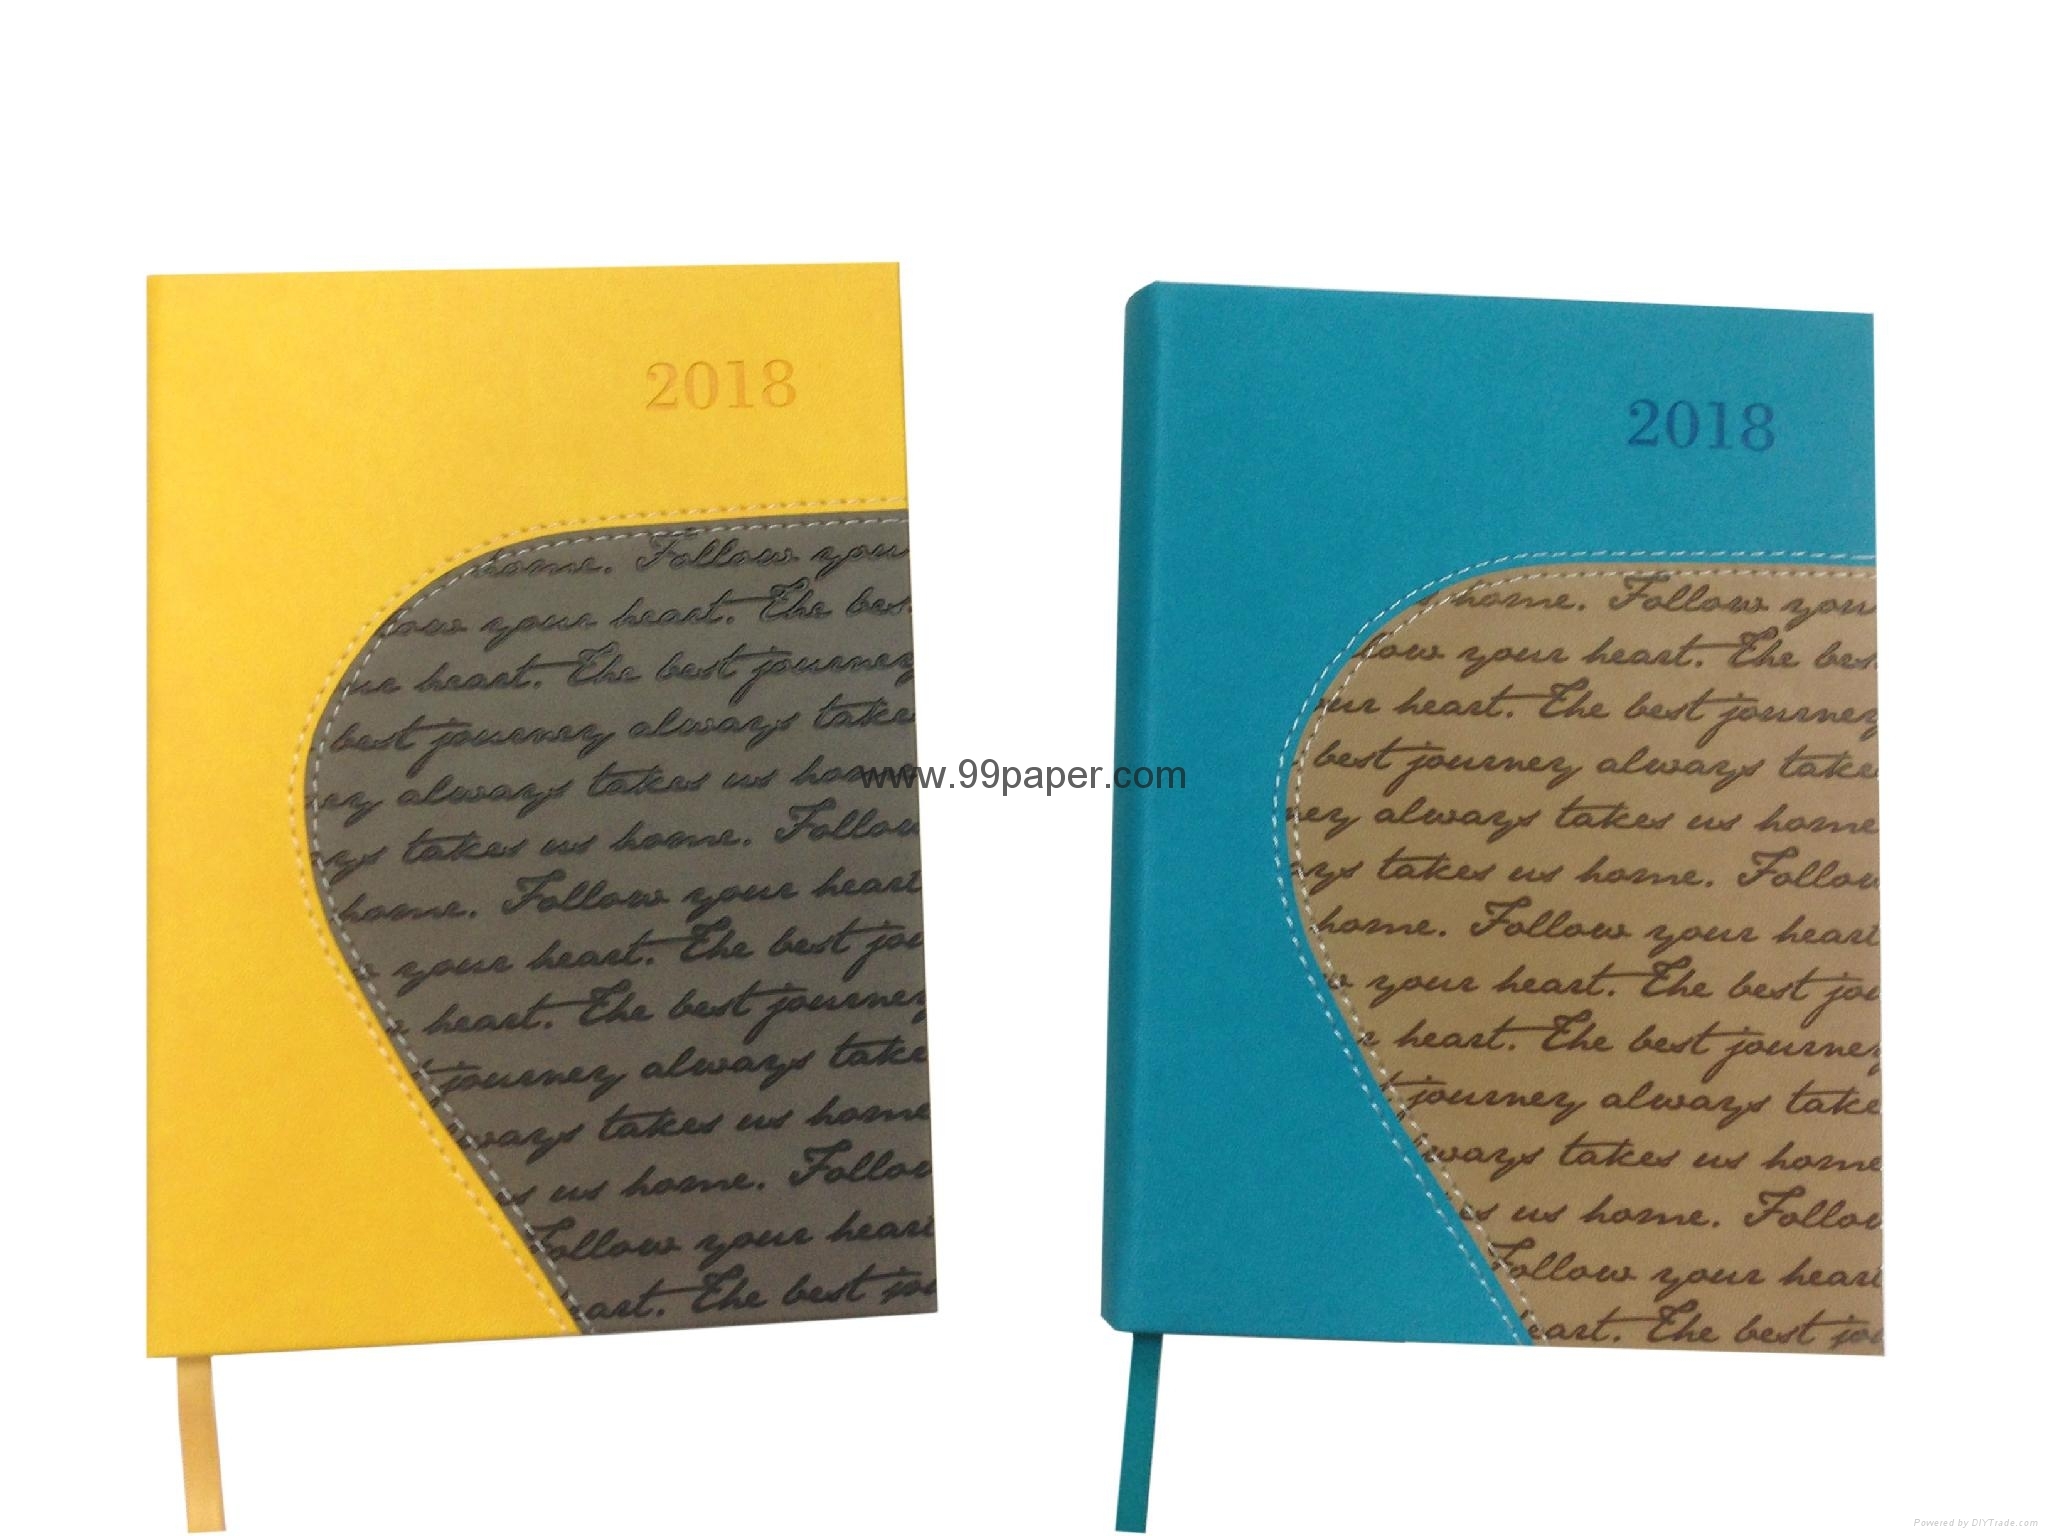 2018
home. Follow you
low your heart. The bes
ur heart. The best journey
best journey always take
ey always takes us home
ys takes us home. Follow
home. Follow your heart
w your heart. The best jou
r heart. The best journey
journey always take
ways takes us home
s us home. Follow
Follow your heart
eart. The best jou
2018
home. Follow you
low your heart. The bes
ur heart. The best journey
best journey always take
ney always takes us home
ays takes us home. Follow
home. Follow your heart
w your heart. The best jou
r heart. The best journey
journey always take
lways takes us home
es us home. Follow
Follow your heart
eart. The best jou
www.99paper.com
Powered by DIYTrade.com